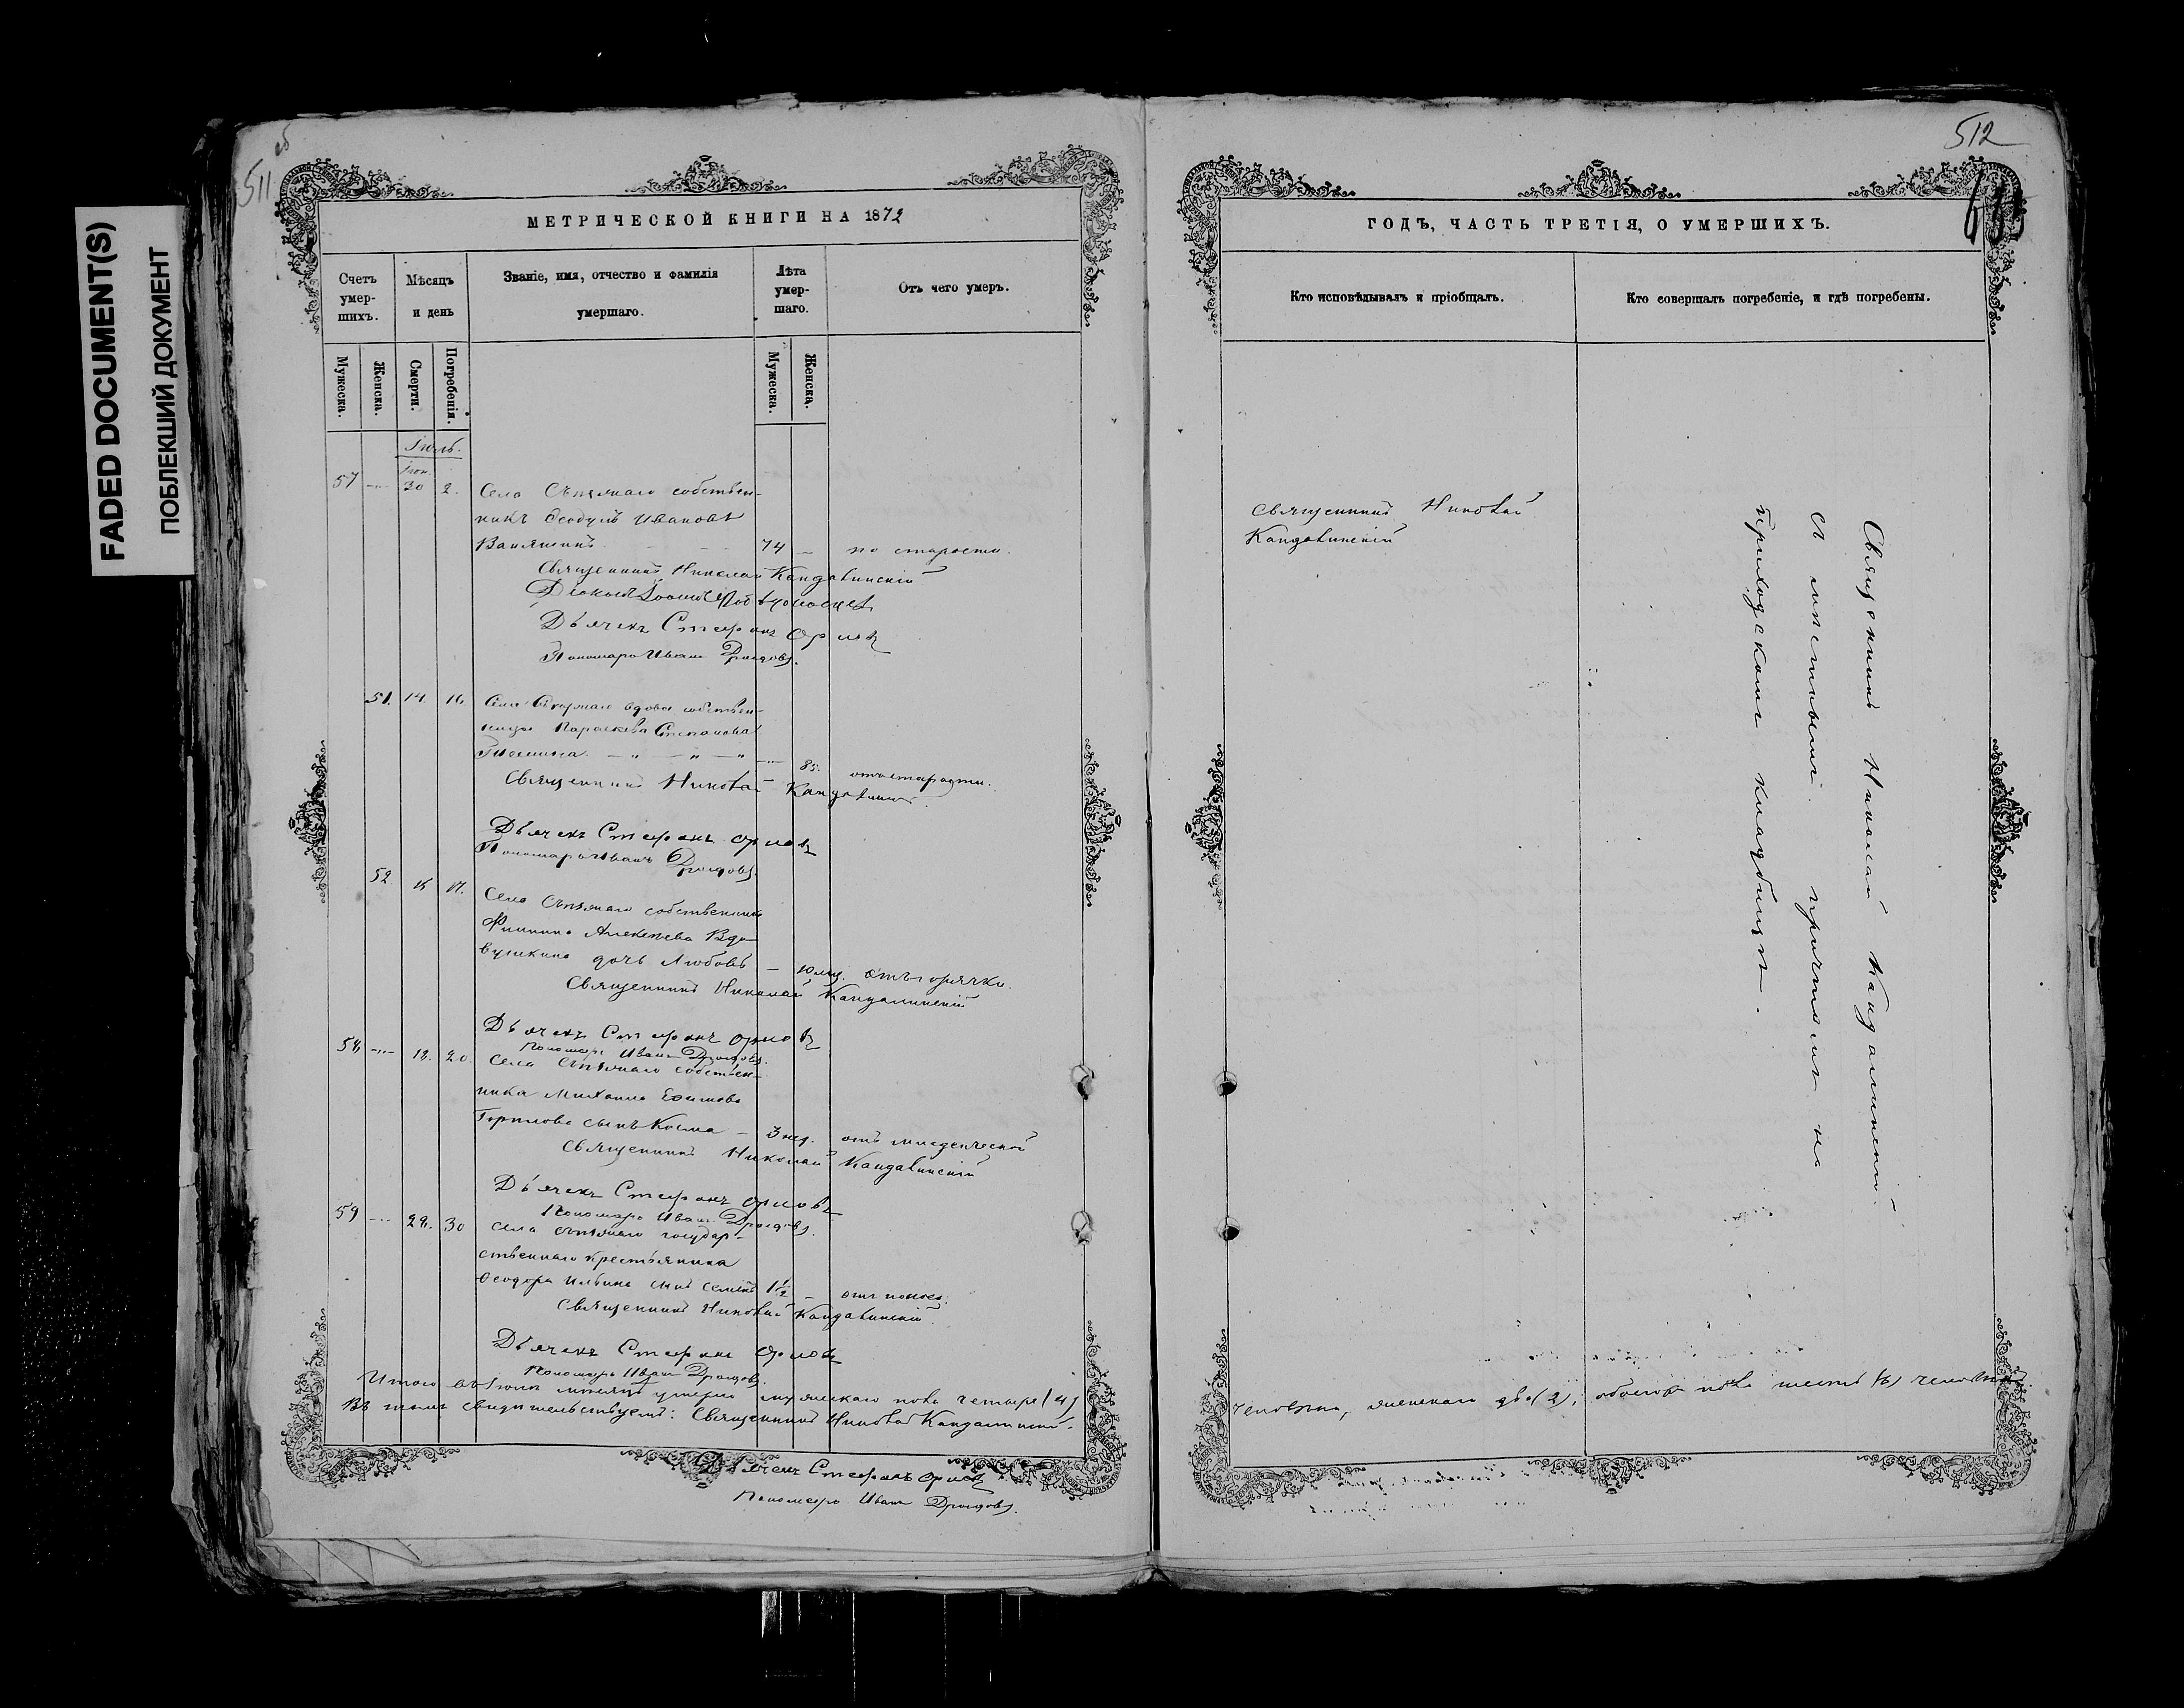 FADED DOCUMENT(S)
ПОБЛЕКШИЙ ДОКУМЕНТ
511 об
МЕТРИЧЕСКОЙ КНИГИ НА 1872
Счетъ умер-шихъ.
Мѣсяцъ и день
Званіе, имя, отчество и фамилія умершаго.
Лѣта умер-шаго.
Отъ чего умеръ.
Мужеска.
Женска.
Смерти.
Погребенія.
Мужеска.
Женска.
Іюль.
Іюн.
57 30 2. Села собствен-
никъ Ѳеодулъ Ивановъ
74 — по старости.
Священникъ Николай Кандалинскій
Діаконъ Іоаннъ
Дьячекъ Стефанъ Орловъ
Пономарь Иванъ Дроздовъ.
51. 14. 16. Села вдова собствен-
ница Параскева Степанова
85. отъ старости.
Священникъ Николай Кандалинскій.
Дьячекъ Стефанъ Орловъ
Пономарь Иванъ Дроздовъ.
52. 15 17.
Села собственника
Филиппа Алексѣева Вдо-
вушкина дочь Любовь — 10 мѣс. отъ горячки.
Священникъ Николай Кандалинскій
Дьячекъ Стефанъ Орловъ
Пономарь Иванъ Дроздовъ.
58. 18. 20. Села собствен-
ника Михаила Ефимова
сынъ Косма — 3 нед. отъ младенческой
Священникъ Николай Кандалинскій
Дьячекъ Стефанъ Орловъ
Пономарь Иванъ Дроздовъ.
59 28. 30 Села государ-
ственнаго крестьянина
Ѳеодора Ильина сынъ Семенъ 1½ — отъ поноса.
Священникъ Николай Кандалинскій.
Дьячекъ Стефанъ Орловъ
Пономарь Иванъ Дроздовъ.
Итого въ Іюлѣ мѣсяцѣ умерло мужескаго пола четыре (4)
Въ томъ свидѣтельствуемъ: Священникъ Николай Кандалинскій.
Дьячекъ Стефанъ Орловъ
Пономарь Иванъ Дроздовъ.
512
ГОДЪ, ЧАСТЬ ТРЕТІЯ, О УМЕРШИХЪ.
Кто исповѣдывалъ и пріобщалъ.
Кто совершалъ погребеніе, и гдѣ погребены.
Священникъ Николай
Кандалинскій
Священникъ Николай Кандалинскій
съ мѣстнымъ причтомъ на
приходскомъ кладбищѣ.
человѣка, женскаго два (2), обоего пола шесть (6) человѣкъ.